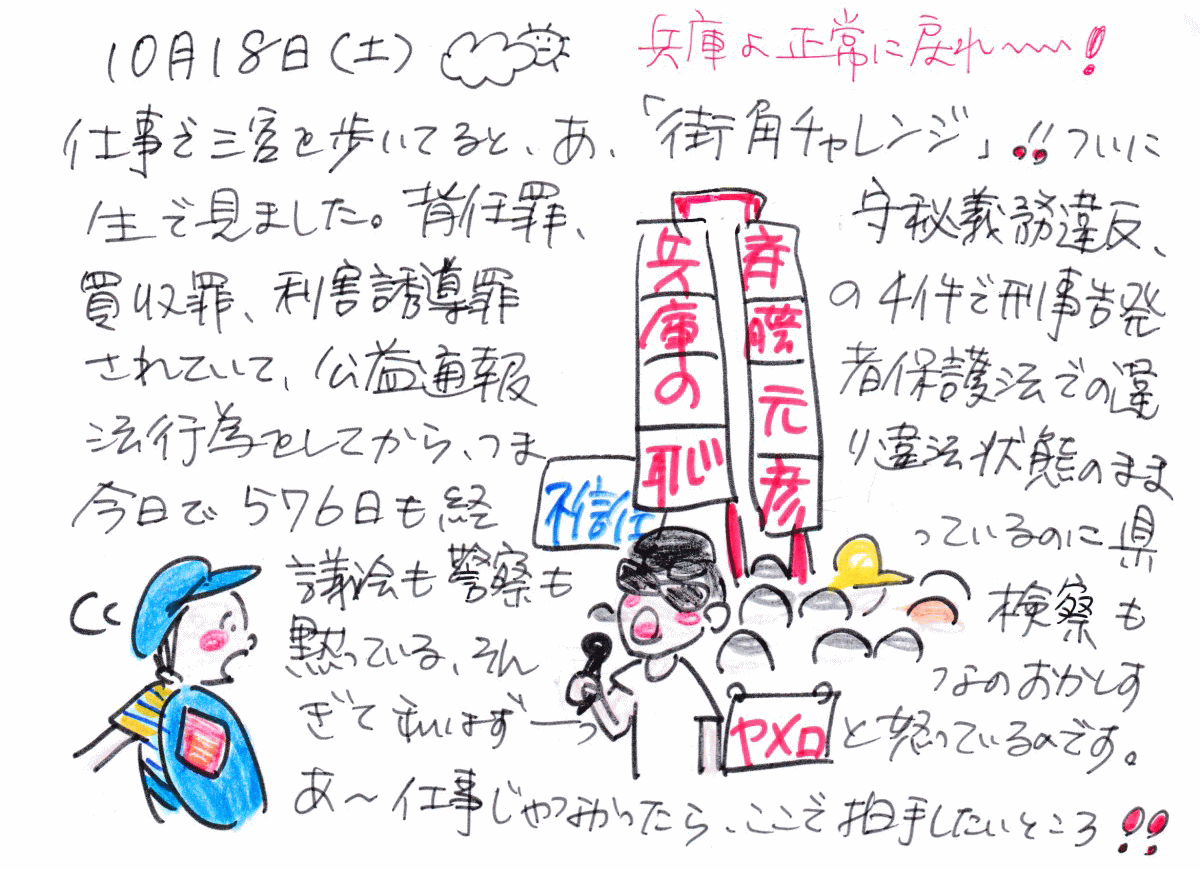 10月18日(土)
兵庫よ正常に戻れ〜〜〜!
仕事で三宮を歩いてると、あ、「街角チャレンジ」!!ついに
生で見ました。背任罪、守秘義務違反、
買収罪、利害誘導罪の4件で刑事告発
されていて、公益通報者保護法での違
法行為をしてから、つまり違法状態のまま
今日で576日も経っているのに県
議会も警察も検察も
黙っている、そんなのおかしす
ぎて私はず一っと怒っているのです。
あ〜仕事じゃなかったら、ここで拍手したいところ!!
兵庫の恥
斉藤元彦
不信任
ヤメロ